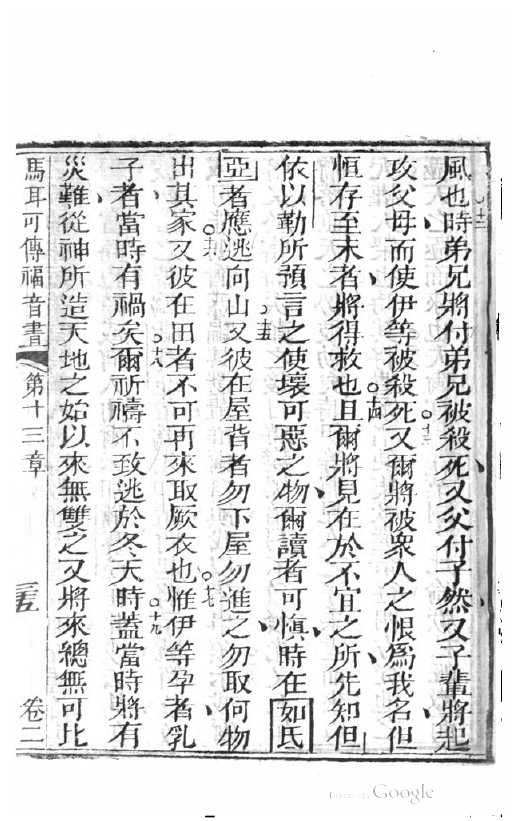 風也時弟兄將付弟兄被殺死又父付子然又子輩將起
攻父母而使伊等被殺死又爾將被衆人之恨爲我名但
恒存至末者將得救也且爾將見在於不宜之所先知但
依以勒所預言之使壞可惡之物爾讀者可慎時在如氐
亞者應逃向山又彼在屋背者勿下屋勿進之勿取何物
出其家又彼在田者不可再來取厥衣也惟伊等孕者乳
子者當時有禍矣爾祈禱不致逃於冬天時蓋當時將有
災難從神所造天地之始以來無雙之又將來總無可比
馬耳可傳福音書 第十三章 三五 卷二
十三
十四
十五
十六
十七
十八
十九
Digitized by Google